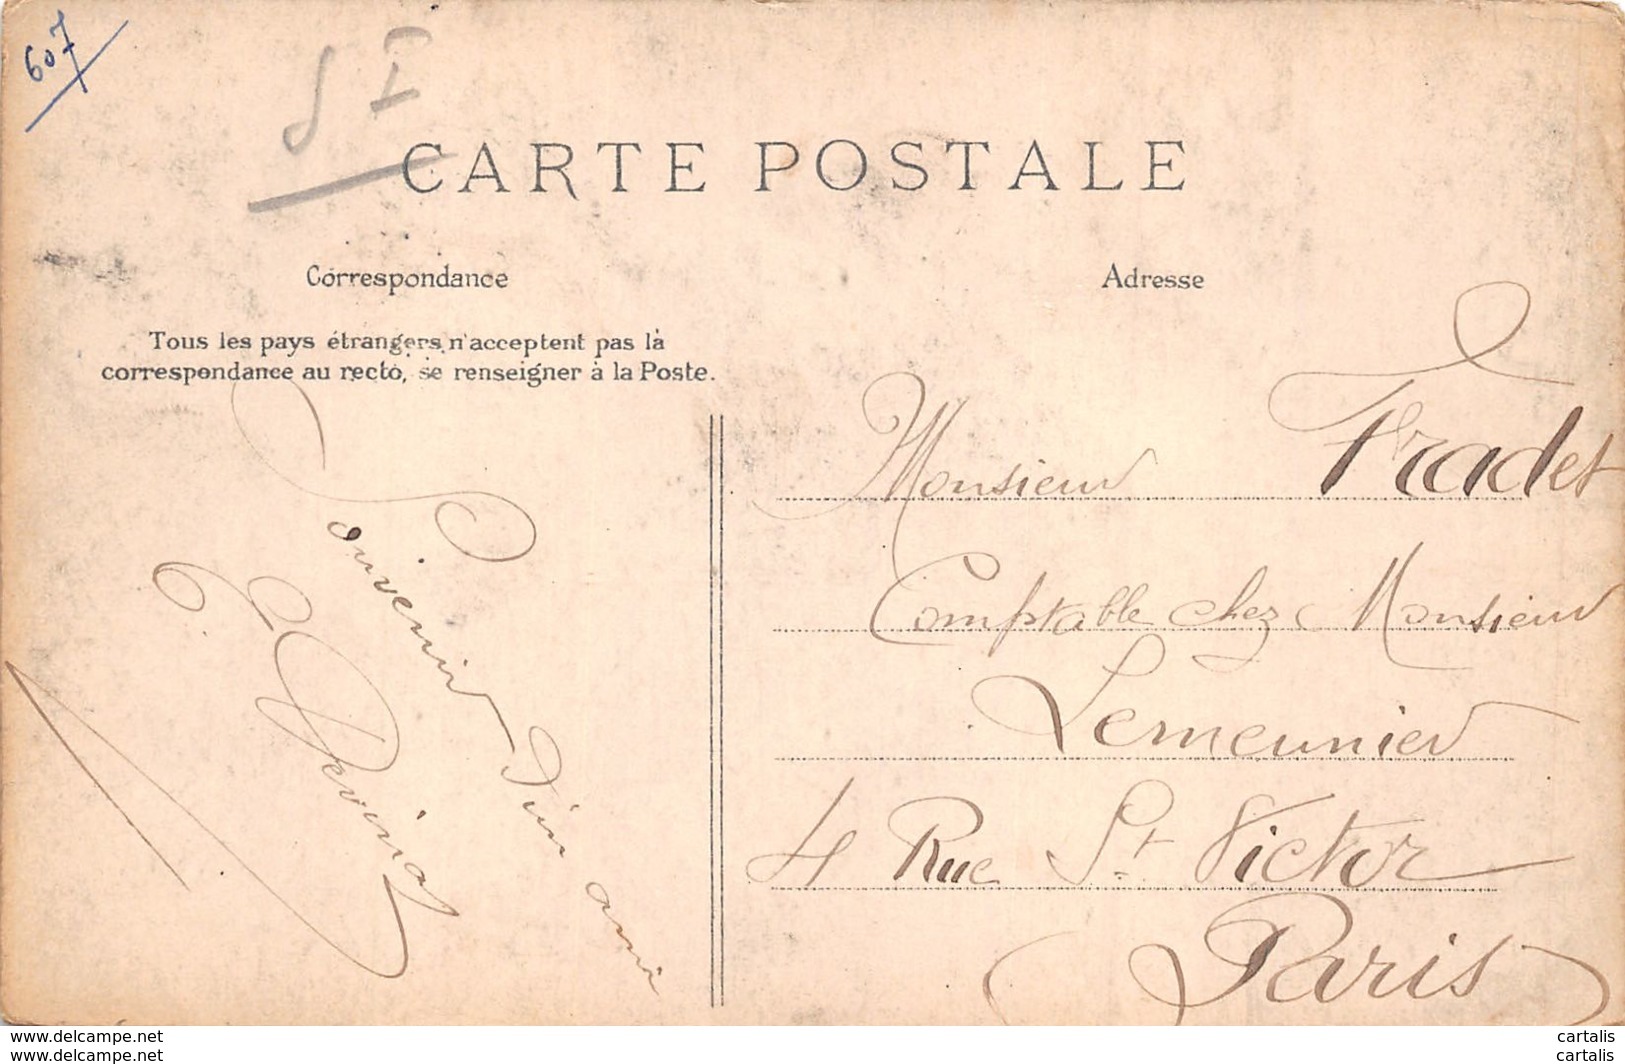 607
CARTE POSTALE
Correspondance
Tous les pays étrangers n'acceptent pas la
correspondance au recto, se renseigner à la Poste.
Souvenir d'un ami
Adresse
Monsieur Fradet
Comptable chez Monsieur
Lemeunier
4 Rue St. Victor
Paris
www.delcampe.net cartalis
www.delcampe.net cartalis